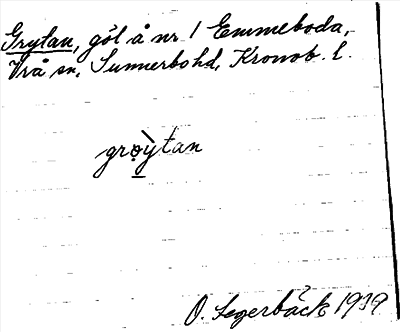 Grytan, göl å nr 1 Emmeboda,
Vrå sn, Sunnerbo hd, Kronob. l.
grọỳtan
O. Segerbäck 1939